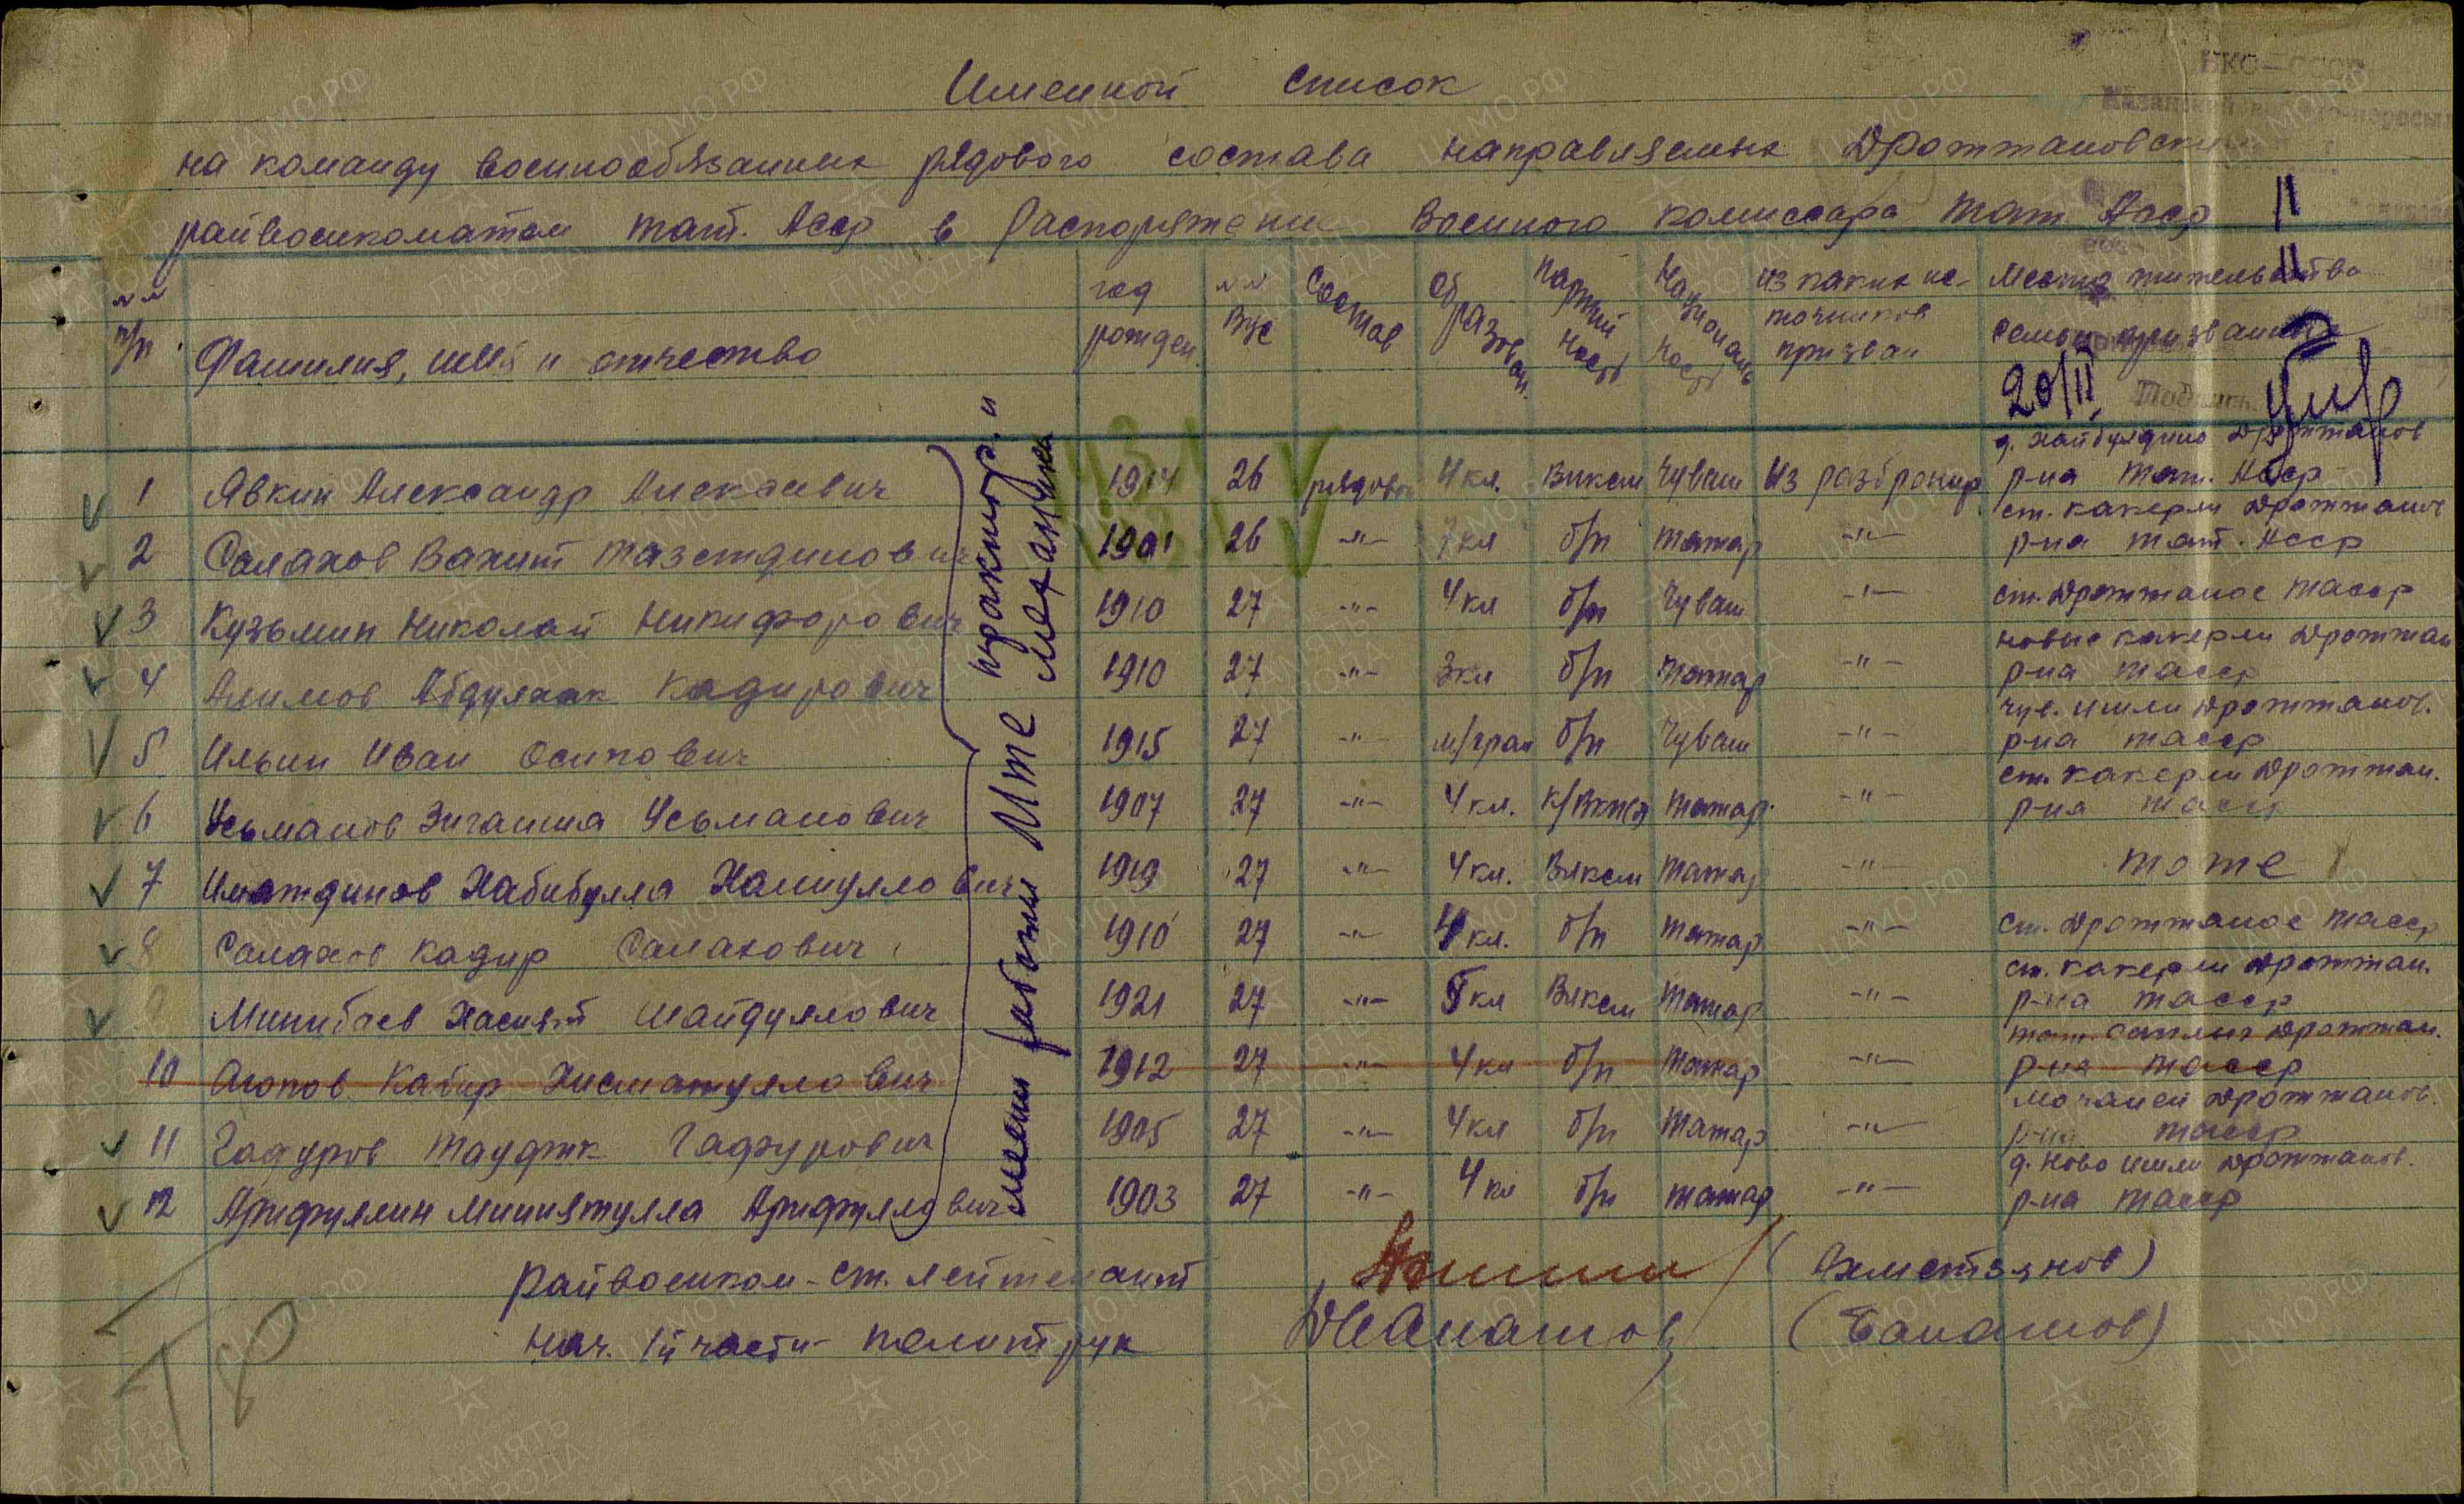 Именной список
на команду военнообязанных рядового состава направляемых Дрожжановским
райвоенкоматом Тат. Асср в распоряжение Военного комиссара Тат Асср
№№ п/п Фамилия, имя и отчество год рожден. №№ ВУС Состав Образован. Партийность Националь ность из каких источников призван Место жительства семьи призванных
20/II.
1 Явкин Александр Алексеевич 1914 26 рядовой 4 кл. Влксм Чуваш Из разбронир д. Хайбулдино Дрожжанов р-на Тат. Асср
2 Салахов Вахит Тазетдинович 1901 26 -"- 7 кл б/п татар -"- ст. Какерли Дрожжанов р-на Тат. Асср
3 Кузьмин Николай Никифорович 1910 27 -"- 4 кл б/п Чуваш -"- ст. Дрожжаное Тасср
4 Алимов Абдулхак Кадирович 1910 27 -"- 3 кл б/п татар -"- новые Какерли Дрожжан р-на Тасср
5 Ильин Иван Осипович 1915 27 -"- м/грам б/п Чуваш -"- Чув. Ишли Дрожжанов. р-на Тасср
6 Усьманов Зиганша Усьманович 1907 27 -"- 4 кл. к/Вкп(б) татар -"- ст. Какерли Дрожжан. р-на Тасср
7 Имамтдинов Хабибулла Хамиуллович 1919 27 -"- 4 кл. Влксм татар -"- тоже
8 Салахов Кадир Салахович 1910 27 -"- 4 кл. б/п татар -"- ст. Дрожжаное Тасср
9 Минибаев Хасият Шайдуллович 1921 27 -"- 5 кл Влксм татар -"- ст. Какерли Дрожжан. р-на Тасср
10 Аюпов Кабир Хисматуллович 1912 27 -"- 4 кл б/п татар -"- тат. Саплык Дрожжан. р-на Тасср
11 Гафуров Тауфик Гафурович 1905 27 -"- 4 кл б/п татар -"- Мочалей Дрожжанов. р-на Тасср
12 Арифуллин Миниятулла Арифуллович 1903 27 -"- 4 кл б/п татар -"- д. Ново Ишли Дрожжанов. р-на Тасср
райвоенком - ст. лейтенант (Ахметзянов)
нач. 1й части - политрук (Банашов)
Т 80